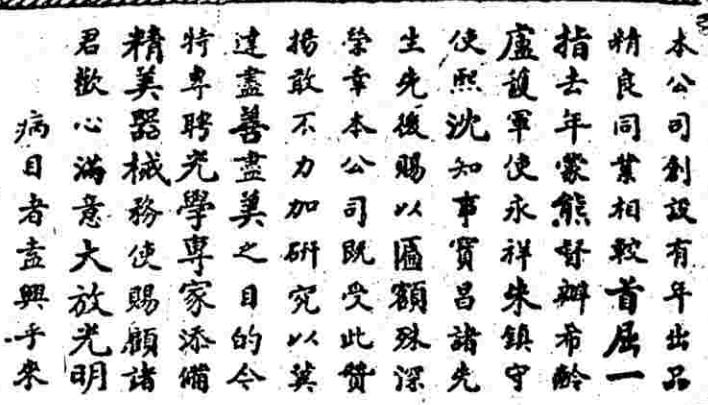 本公司創設有年出品
精良同業相較首屈一
指去年蒙熊督辦希齡
盧護軍使永祥朱鎮守
使熙沈知事寶昌諸先
生先後賜以匾額殊深
榮幸本公司既受此贊
揚敢不力加硏究以冀
達盡善盡美之目的今
特專聘光學專家添備
精美器械務使賜顧諸
君歡心滿意大放光明
病目者盍興乎來